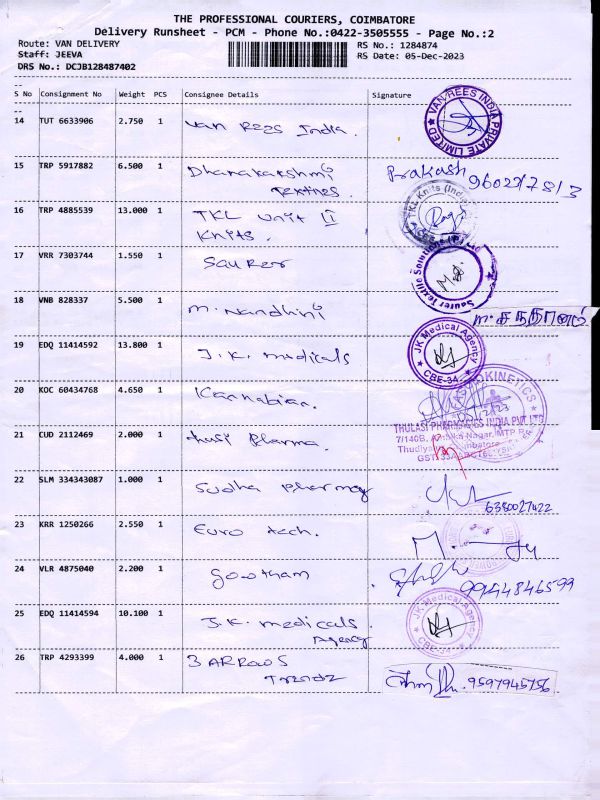 THE PROFESSIONAL COURIERS, COIMBATORE
Delivery Runsheet - PCM - Phone No.:0422-3505555 - Page No.:2
Route: VAN DELIVERY
RS No.: 1284874
Staff: JEEVA
RS Date: 05-Dec-2023
DRS No.: DCJB128487402
S No Consignment No Weight PCS Consignee Details Signature
14 TUT 6633906 2.750 1 Van Rees India.
VAN REES INDIA PRIVATE LIMITED
15 TRP 5917882 6.500 1
Textines. Prakash
16 TRP 4885539 13.000 1 TKL unit II
Knits.
TKL Knits (India)
17 VRR 7303744 1.550 1 Saurer
Saurer Textile Solutions (P) Ltd
18 VNB 828337 5.500 1 M. Nandhini
19 EDQ 11414592 13.800 1 J.K. medicals
JK Medical Agency
CBE-34
20 KOC 60434768 4.650 1
THULASI PHARMACIES INDIA PVT LTD
21 CUD 2112469 2.000 1 Pharma.
22 SLM 334343087 1.000 1 Sudha Pharmacy
6380027422
23 KRR 1250266 2.550 1 Euro tech.
24 VLR 4875040 2.200 1 Gowtham
9944846599
25 EDQ 11414594 10.100 1 J.K. medicals
Agency
JK Medical Agency
CBE-34
26 TRP 4293399 4.000 1 3 ARROWS
Trendz
9597945756